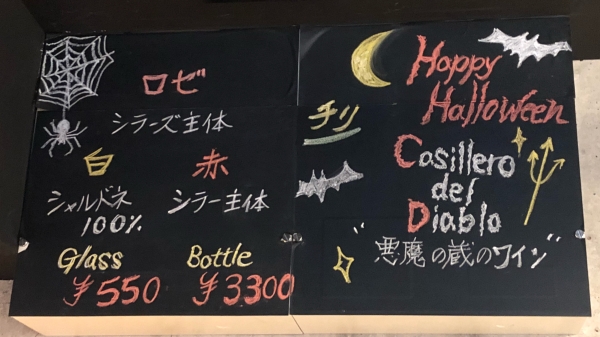 ロゼ
シラーズ主体
白 赤
シャルドネ シラー主体
100%
Glass Bottle
¥550 ¥3300
チリ
Happy
Halloween
Casillero
del
Diablo
"悪魔の蔵のワイン"